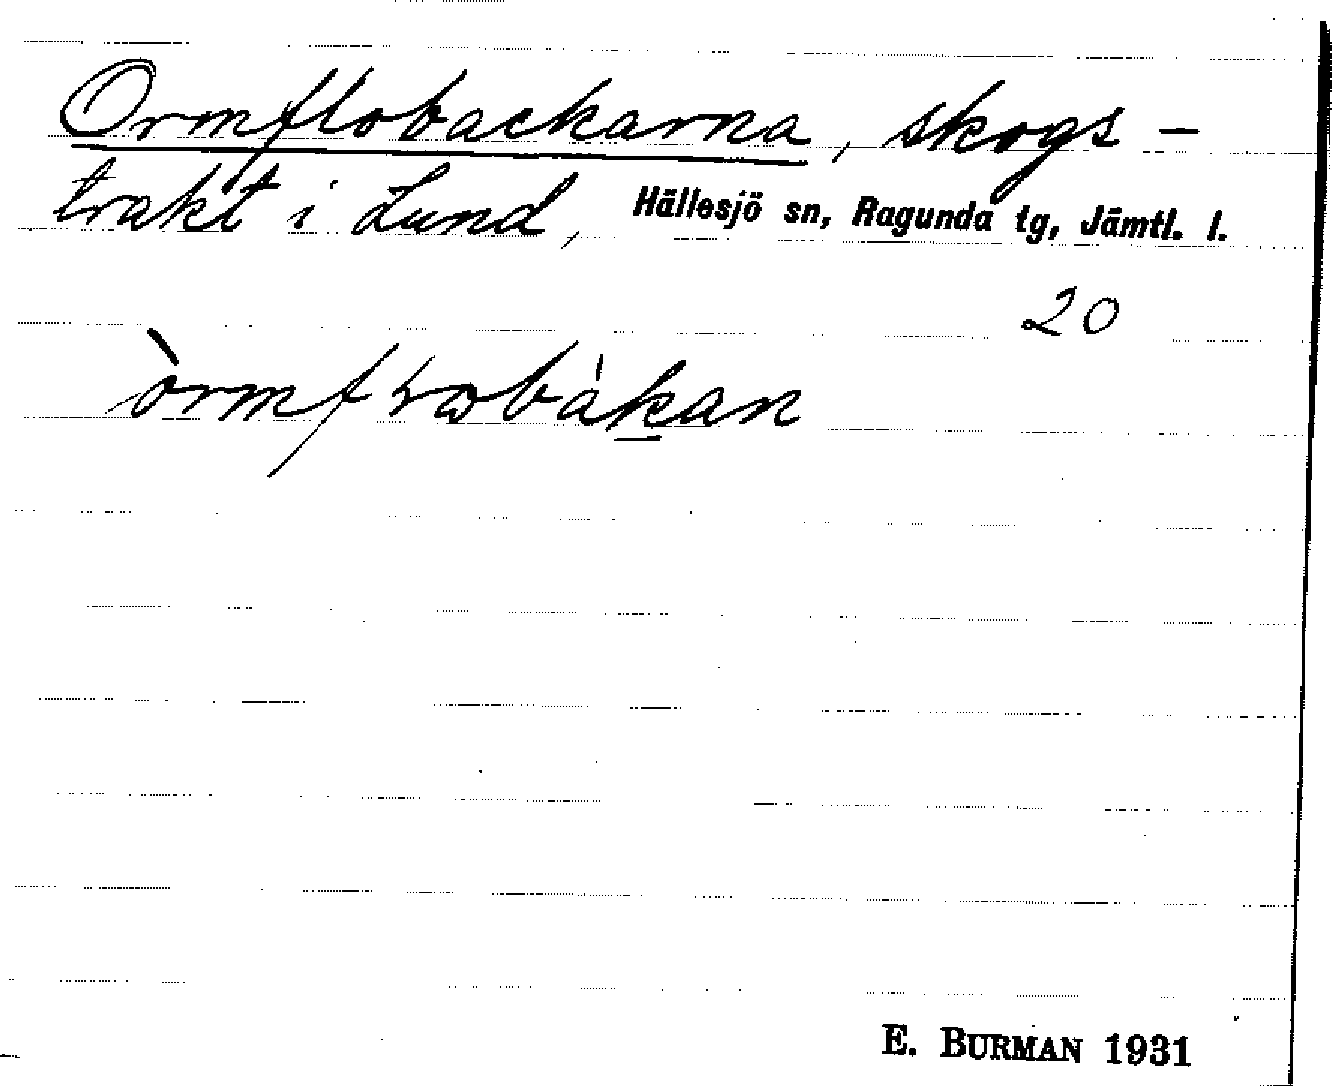 Ormflobackarna, skogs-
trakt i Lund, Hällesjö sn, Ragunda tg, Jämtl. l.
20
E. BURMAN 1931